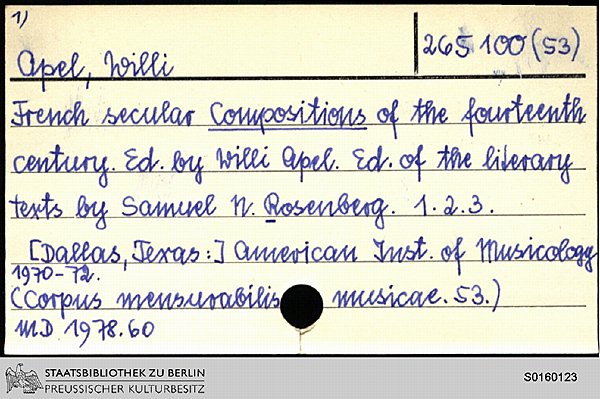 1)
265 100 (53)
Apel, Willi
French secular Compositions of the fourteenth
century. Ed. by Willi Apel. Ed. of the literary
texts by Samuel N. Rosenberg. 1.2.3.
[Dallas, Texas:] American Inst. of Musicology
1970-72.
(Corpus mensurabilis musicae. 53.)
M.D 1978.60
STAATSBIBLIOTHEK ZU BERLIN
PREUSSISCHER KULTURBESITZ
S0160123